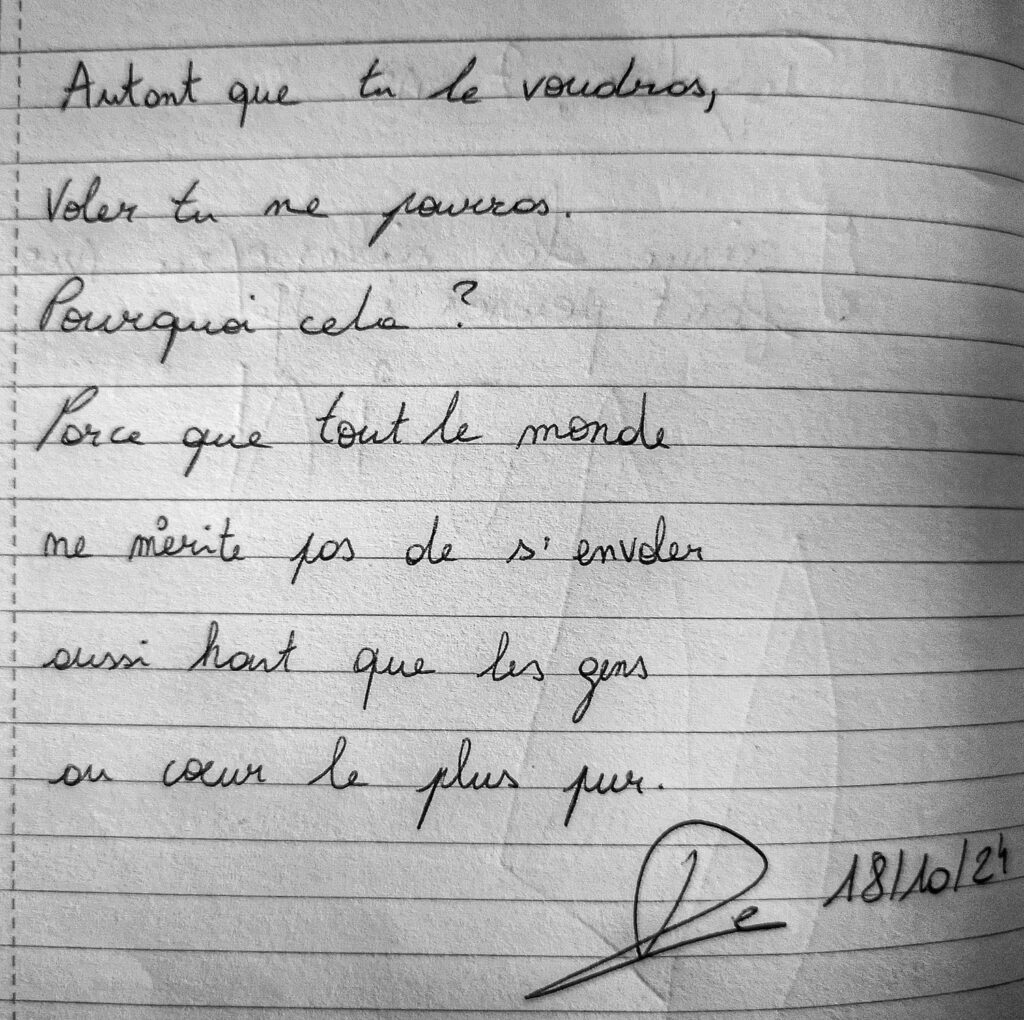 Autant que tu le voudras,
Voler tu ne pourras.
Pourquoi cela ?
Parce que tout le monde
ne mérite pas de s'envoler
aussi haut que les gens
au cœur le plus pur.
18/10/24